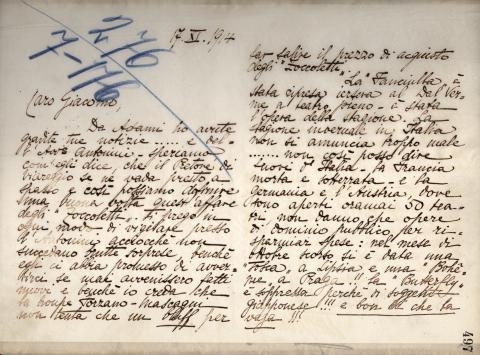 2476
7-176
17. XI. 1914
Caro Giacomo,
Da Adami ho avute
tue notizie ..... e
Avv. Antonini. Speriamo,
com'egli dice, che il Pretore di
Viareggio se ne vada presto a
spasso e così possiamo definire
una buona volta quest'affare
degli "Zoccoletti". Ti prego in
ogni modo di vigilare presso
l'Antonini acciocchè non
succedano brutte sorprese, benchè
egli ci abbia promesso di avver-
tirci se mai avvenissero fatti
nuovi e benchè io creda che
la troupe Forzano-Mascagni
non tenta che un bluff per
far salire il prezzo di acquisto
degli "Zoccoletti". La "Fanciulla" è
stata ripresa iersera al Dal Ver-
me a teatro pieno - è stata
l'opera della stagione. La
stagione invernale in Italia
non si annuncia troppo male
....... non così posso dire
fuori d'Italia. La Francia
morta e sotterrata - e la
Germania e l'Austria, dove
sono aperti oramai 50 tea-
tri, non danno, che opere
di dominio pubblico, per ri-
sparmiar spese: nel mese di
ottobre scorso si è data una
Tosca, a Lipsia e una "Bohè-
me" a Praga !!! La "Butterfly"
è soppressa perchè di soggetto
giapponese !!! e bon che la
vaga !!!
497